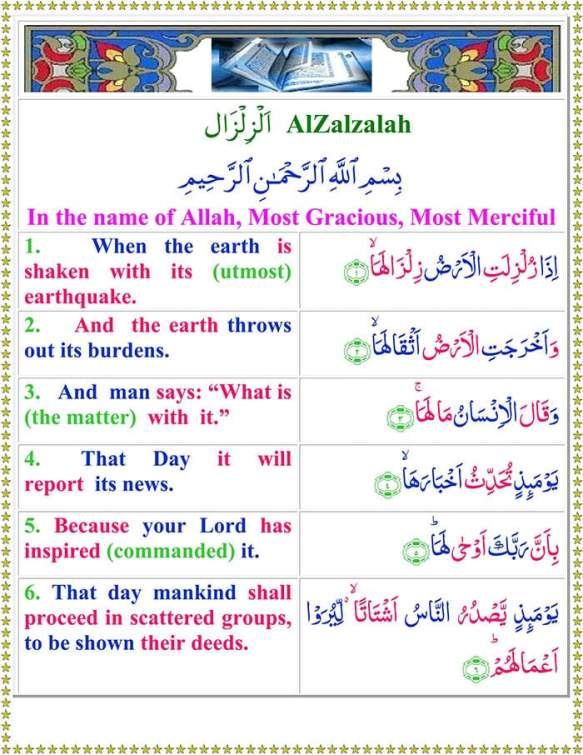 اَلْزِلْزَال AlZalzalah
بِسْمِ ٱللَّهِ ٱلرَّحْمَـٰنِ ٱلرَّحِيمِ
In the name of Allah, Most Gracious, Most Merciful
1. When the earth is
shaken with its (utmost)
earthquake.
اِذَا زُلْزِلَتِ الْاَرْضُ زِلْزَالَهَا ۙ ﴿۱﴾
2. And the earth throws
out its burdens.
وَاَخْرَجَتِ الْاَرْضُ اَثْقَالَهَا ۙ ﴿۲﴾
3. And man says: “What is
(the matter) with it.”
وَقَالَ الْاِنْسَانُ مَا لَهَا ۚ ﴿۳﴾
4. That Day it will
report its news.
يَوْمَئِذٍ تُحَدِّثُ اَخْبَارَهَا ۙ ﴿۴﴾
5. Because your Lord has
inspired (commanded) it.
بِاَنَّ رَبَّكَ اَوْحٰى لَهَا ؕ ﴿۵﴾
6. That day mankind shall
proceed in scattered groups,
to be shown their deeds.
يَوْمَئِذٍ يَّصْدُرُ النَّاسُ اَشْتَاتًا ۙ لِّيُرَوْا
اَعْمَالَهُمْ ؕ ﴿۶﴾